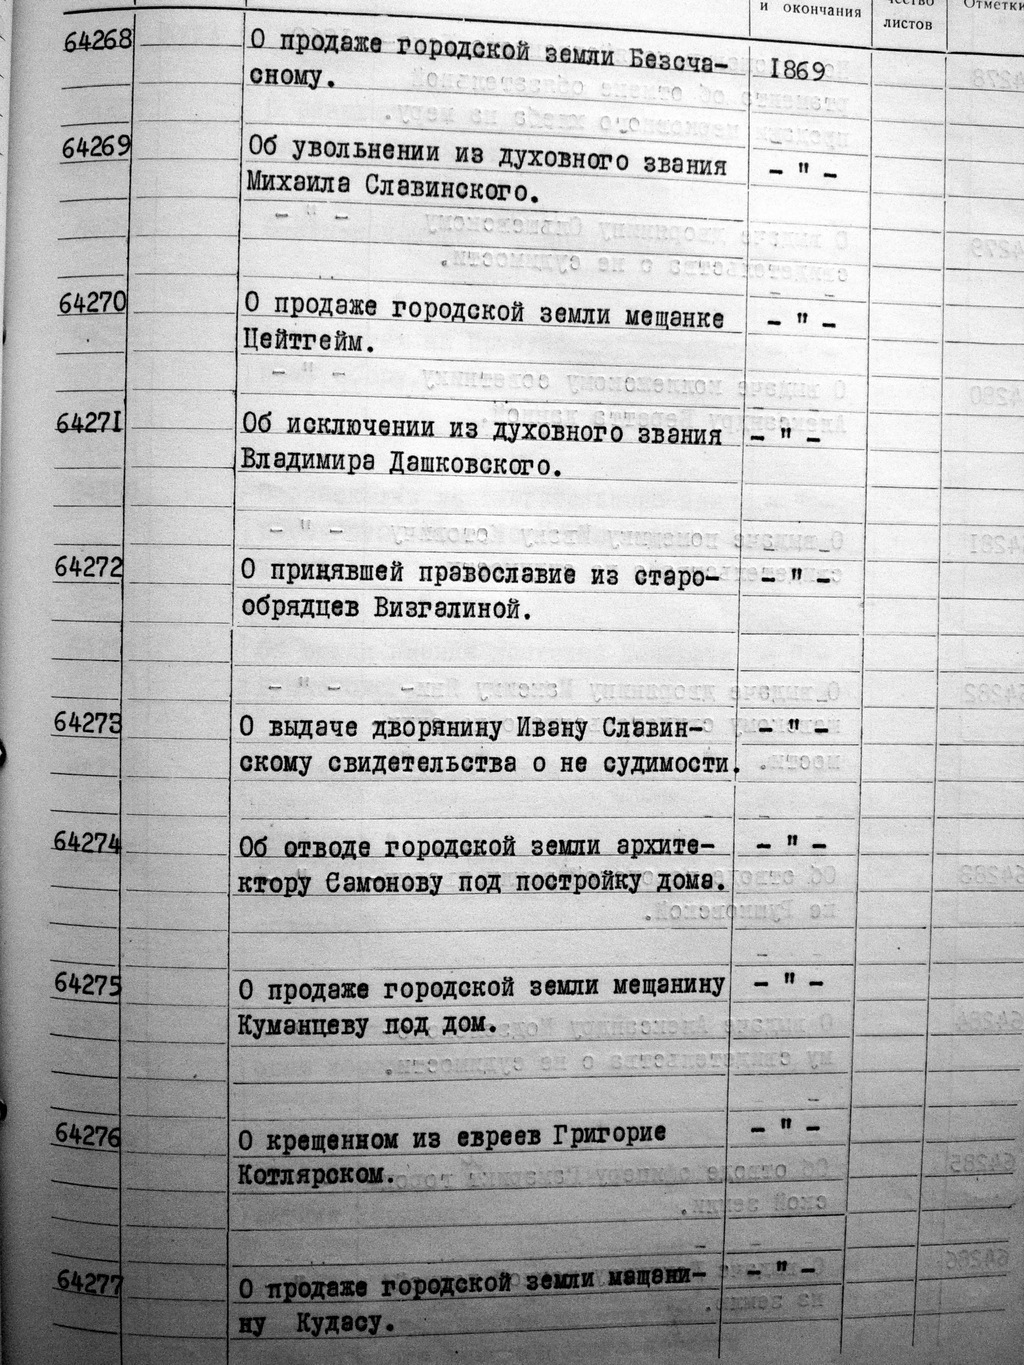 и окончания
чество листов
Отметки
64268 О продаже городской земли Безсча- 1869
сному.
64269 Об увольнении из духовного звания - " -
Михаила Славинского.
64270 О продаже городской земли мещанке - " -
Цейтгейм.
64271 Об исключении из духовного звания - " -
Владимира Дашковского.
64272 О принявшей православие из старо- - " -
обрядцев Визгалиной.
64273 О выдаче дворянину Ивану Славин- - " -
скому свидетельства о не судимости.
64274 Об отводе городской земли архите- - " -
ктору Самонову под постройку дома.
64275 О продаже городской земли мещанину - " -
Куманцеву под дом.
64276 О крещенном из евреев Григорие - " -
Котлярском.
64277 О продаже городской земли мащани- - " -
ну Кудасу.